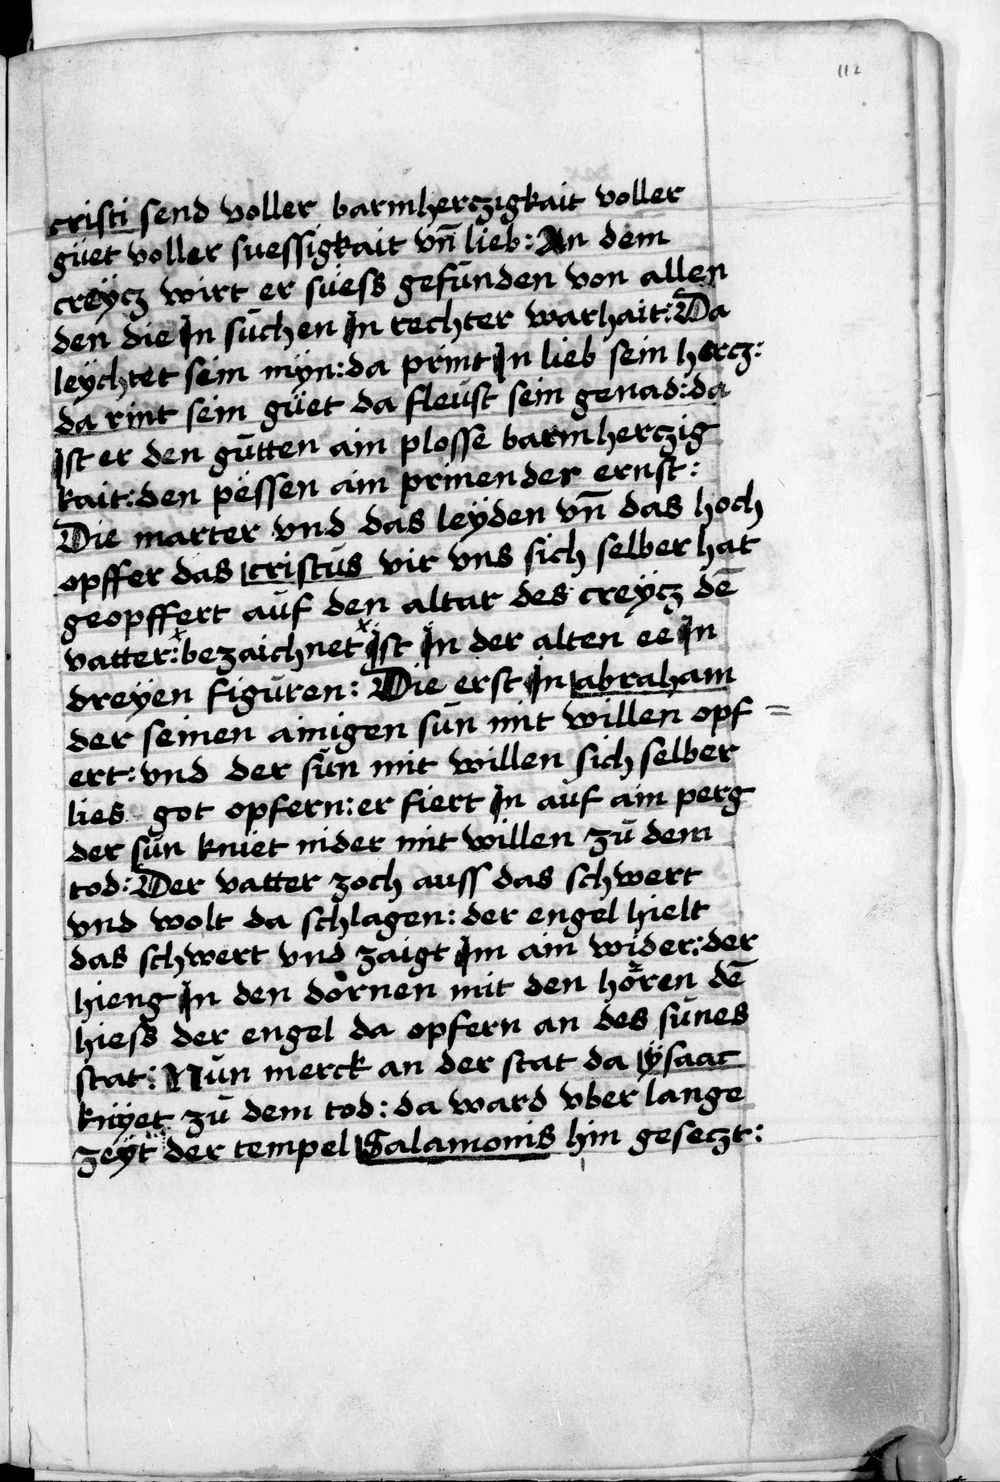 112
cristi send voller barmherczigkait voller
güet voller suessigkait vn̄ lieb: An dem
creÿcz wirt er suess gefunden von allen
den die In suchen In rechter warhait: Da
leÿchtet sein mÿn: da print In lieb sein hercz:
da rint sein güet da fleust sein genad: da
Ist er den gutten ain plosse barmherczig
kait: den pessen ain prinender ernst:
Die marter vnd das leÿden vn̄ das hoch
opffer das cristus vir vns sich selber hat
geopffert auf den altar des creÿcz dē
vatter: bezaichnet Ist In der alten ee In
dreÿen figuren: Die erst In abraham
der seinen ainigen sun mit willen opf =
ert: vnd der sun mit willen sich selber
lies got opfern: er fiert In auf ain perg
der sun kniet nider mit willen zu dem
tod: Der vatter zoch auss das schwert
vnd wolt da schlagen: der engel hielt
das schwert vnd zaigt Im ain wider: der
hieng In den dornen mit den hören dē
hiess der engel da opfern an des sunes
stat: Nun merck an der stat da ÿsaac
knÿet zu dem tod: da ward vber lange
zeÿt der tempel Salamonis hin geseczt: